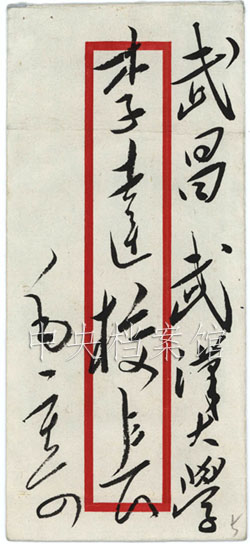 武昌 武漢大學
李達校長
毛
中央档案馆